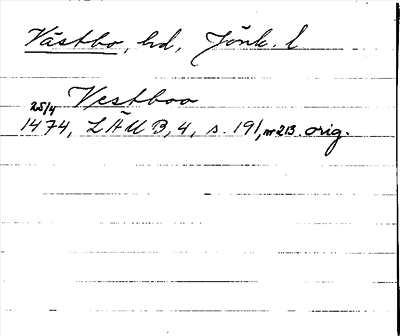 Västbo, hd, Jönk. l
Vestboo
25/4
1474, L Ä U B, 4, s. 191, nr 213. orig.